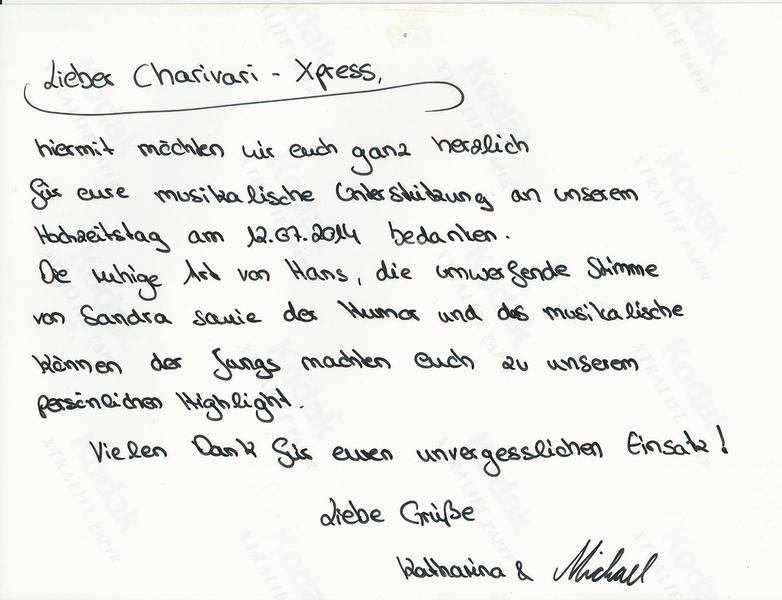 Lieber Charivari - Xpress,
hiermit möchten wir euch ganz herzlich
für eure musikalische Unterstützung an unserem
Hochzeitstag am 12.07.2014 bedanken.
Die ruhige Art von Hans, die umwerfende Stimme
von Sandra sowie der Humor und das musikalische
können der Jungs machten euch zu unserem
persönlichen Highlight.
Vielen Dank für euren unvergesslichen Einsatz!
Liebe Grüße
Katharina & Michael
Kodak
XTRALIFE PAPER